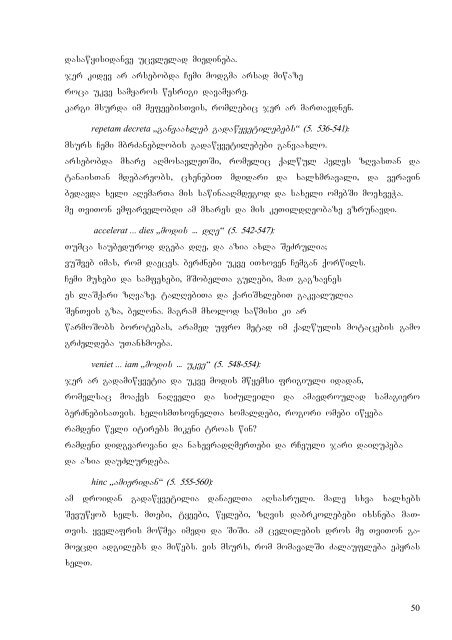 დასაწყისიდანვე უცვლელად მიედინება.
ჯერ კიდევ არ არსებობდა ჩემი მოდგმა არსად მიწაზე
როცა უკვე სამყაროს წესრიგი დავამყარე.
კარგი მსურდა იმ მეფეებისთვის, რომლებიც ჯერ არ მართავდნენ.
repetam decreta „განვაახლებ გადაწყვეტილებებს“ (5. 536-541):
მსურს ჩემი მბრძანებლობის გადაწყვეტილებები განვაახლო.
არსებობდა მხარე აღმოსავლეთში, რომელიც ქალწულ ჰელეს ზღვასთან და
ტანაისთან მდებარეობს, ცხენებით მდიდარი და ხალხმრავალი, და ვერავინ
ბედავდა ხელი აღემართა მის საწინააღმდეგოდ და სახელი ომებში მოეხვეჭა.
მე თვითონ ვმფარველობდი ამ მხარეს და მის კეთილდღეობაზე ვზრუნავდი.
accelerat ... dies „მოდის ... დღე“ (5. 542-547):
თუმცა საუბედუროდ დგება დღე, და აზია ახლა შეძრულია;
ვუშვებ იმას, რომ დაეცეს. ბერძნები უკვე ითხოვენ ჩემგან ქორწილს.
ჩემი მუხები და სამფეხები, მშობელთა გულები, მათ გაგზავნეს
ეს ლაშქარი ზღვაზე. ტალღებითა და ქარიშხლებით გაკვალულია
შენთვის გზა, ბელონა. მაგრამ მხოლოდ საწმისი კი არ
წარმოშობს ბოროტებას, არამედ უფრო მეტად იმ ქალწულის მოტაცების გამო
გრძელდება უთანხმოება.
veniet ... iam „მოდის ... უკვე“ (5. 548-554):
ჯერ არ გადამიწყვეტია და უკვე მოდის მწყემსი ფრიგიული იდადან,
რომელსაც მოაქვს ნაღველი და სიძულვილი და ამავდროულად სამაგიერო
ბერძნებისათვის. ხელისმთხოვნელთა ხომალდები, როგორი ომები იწყება
რამდენი წელი იტირებს მიკენი ტროას წინ?
რამდენი დიდგვაროვანი და ნახევრადღმერთები და რჩეული ჯარი დაიღუპება
და აზია დაუძლურდება.
hinc „ამიერიდან“ (5. 555-560):
ამ დროიდან გადაწყვეტილია დანაელთა აღსასრული. მალე სხვა ხალხებს
შევუწყობ ხელს. მთები, ტყეები, წყლები, ზღვის დაბრკოლებები იხსნება მათ-
თვის. ყველაფრის მოწმეა იმედი და შიში. ამ ცვლილების დროს მე თვითონ გა-
მოვცდი ადგილებს და მიწებს. ვის მსურს, რომ მომავალში ძალაუფლება ეპყრას
ხელთ.
50